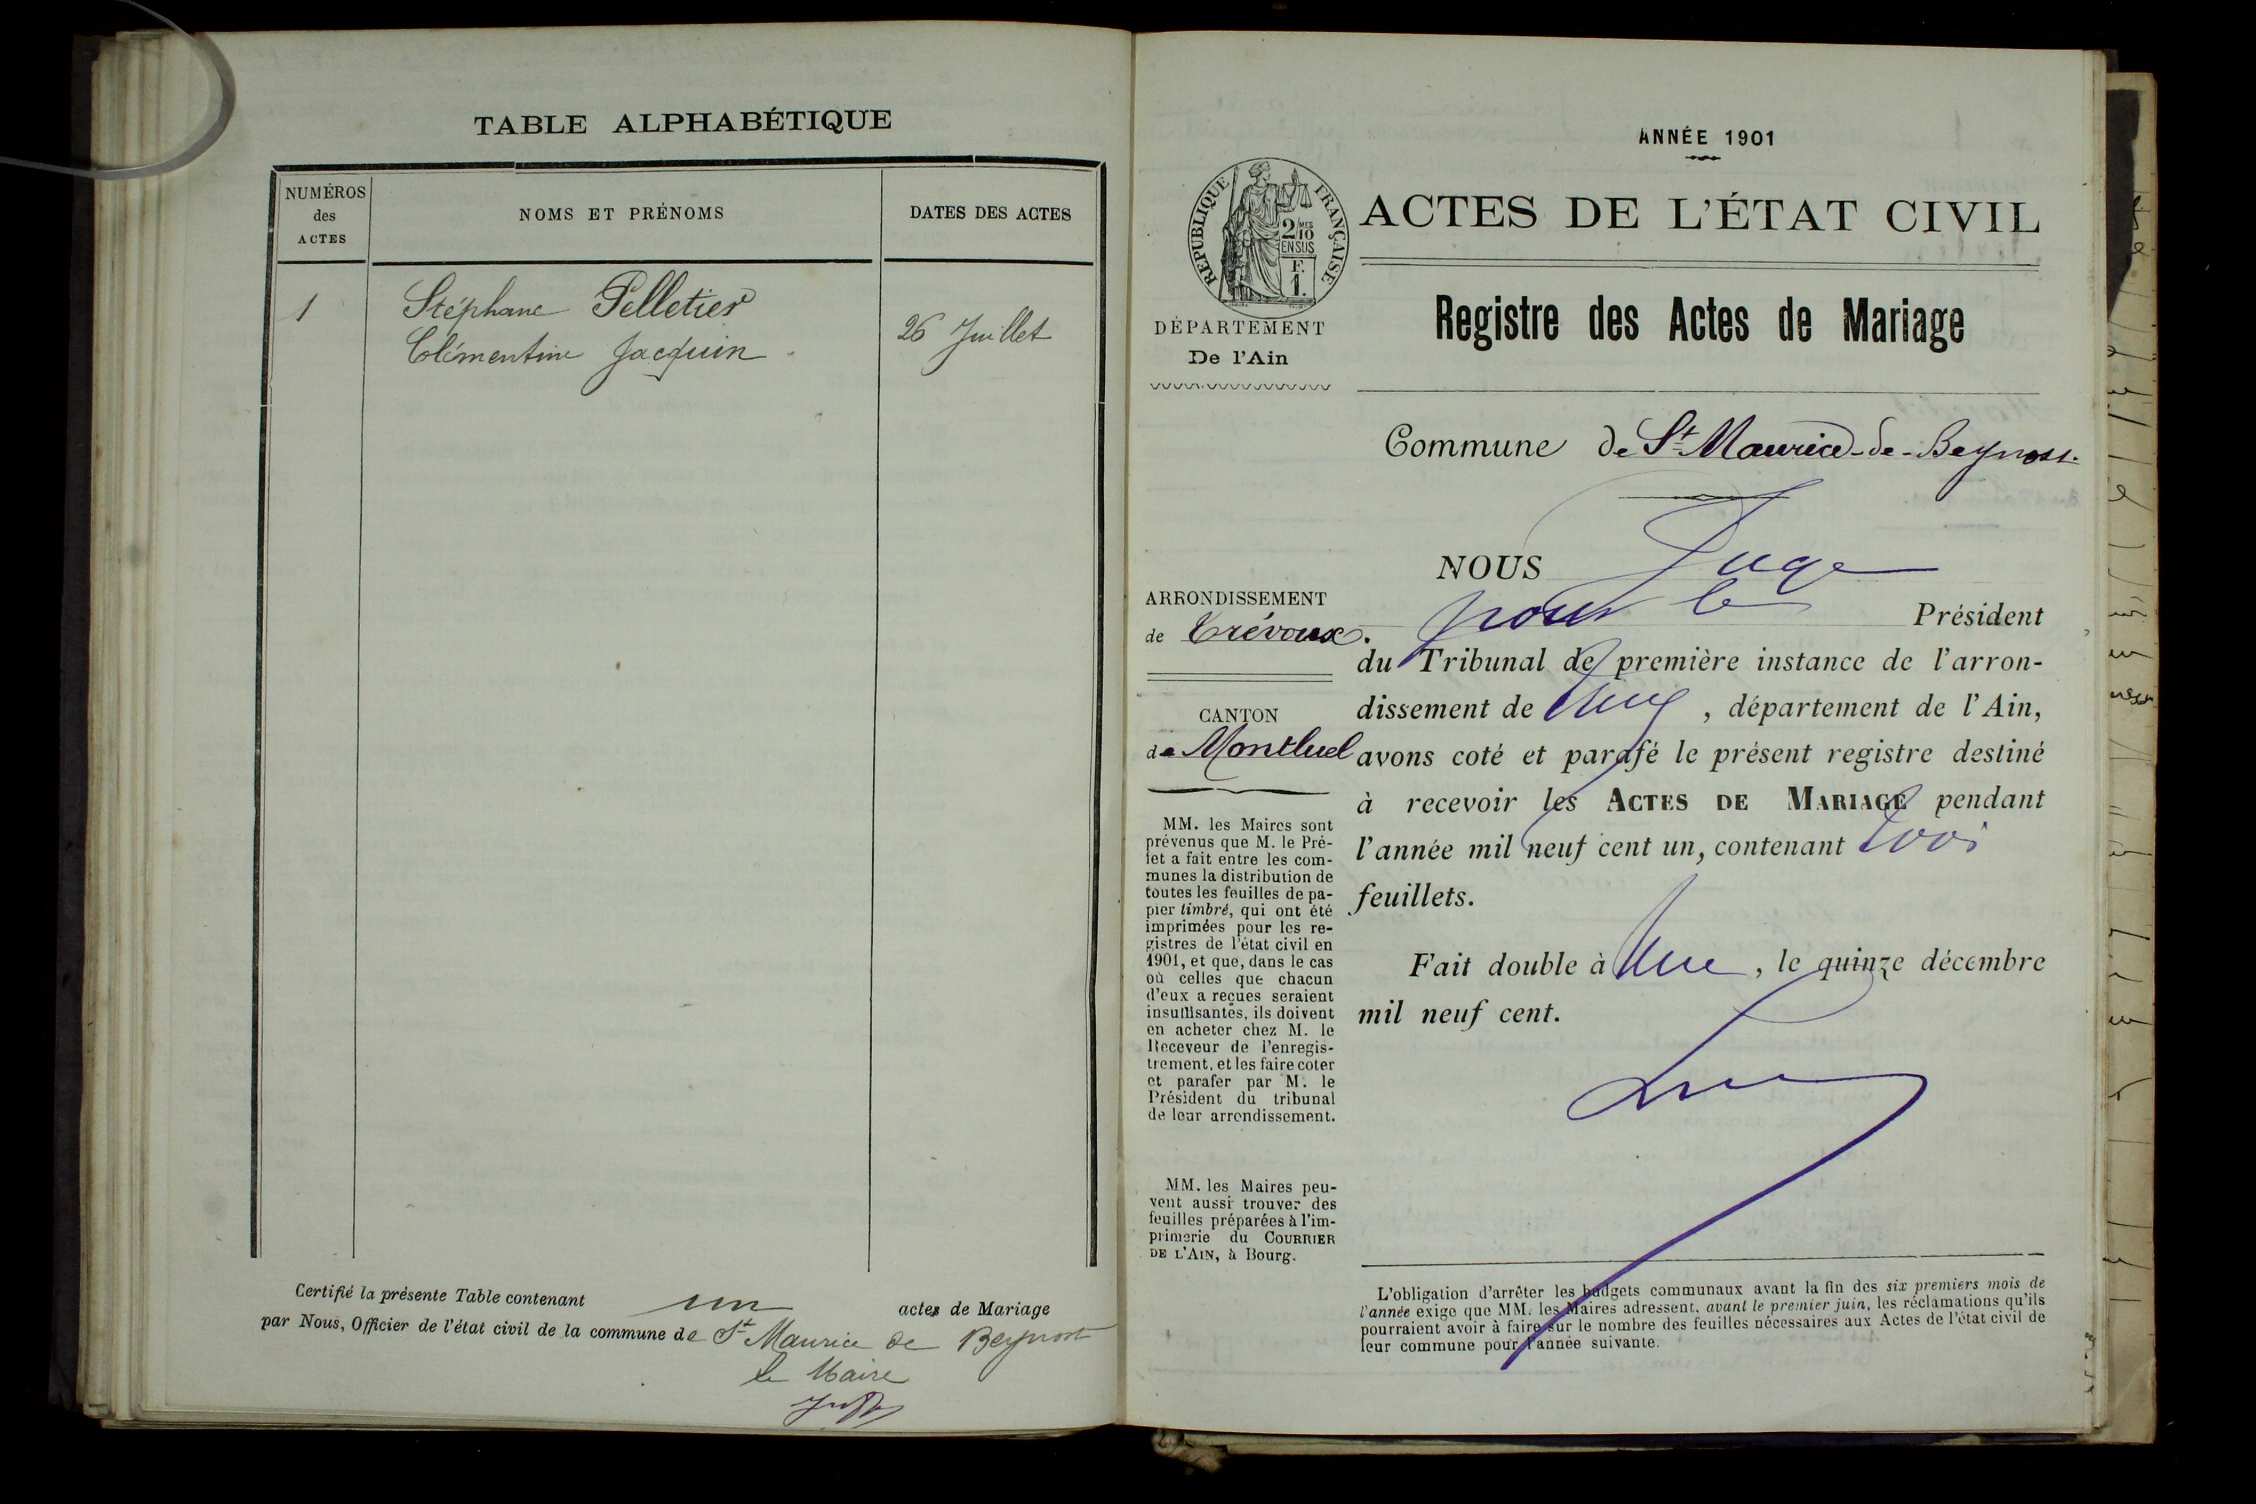 TABLE ALPHABÉTIQUE
NUMÉROS
des
ACTES
NOMS ET PRÉNOMS
DATES DES ACTES
1
Stéphane Pelletier
Clémentine Jacquin
26 Juillet
Certifié la présente Table contenant un actes de Mariage
par Nous, Officier de l'état civil de la commune de St Maurice de Beynost
le Maire
ANNÉE 1901
RÉPUBLIQUE FRANÇAISE
2/10
EN SUS
F.
1.
ACTES DE L'ÉTAT CIVIL
Registre des Actes de Mariage
DÉPARTEMENT
De l'Ain
Commune de St Maurice-de-Beynost.
ARRONDISSEMENT
de Trévoux.
CANTON
de Montluel
MM. les Maires sont
prévenus que M. le Pré-
fet a fait entre les com-
munes la distribution de
toutes les feuilles de pa-
pier timbré, qui ont été
imprimées pour les re-
gistres de l'état civil en
1901, et que, dans le cas
où celles que chacun
d'eux a reçues seraient
insuffisantes, ils doivent
en acheter chez M. le
Receveur de l'enregis-
trement, et les faire coter
et parafer par M. le
Président du tribunal
de leur arrondissement.
MM. les Maires peu-
vent aussi trouver des
feuilles préparées à l'im-
primerie du COURRIER
DE L'AIN, à Bourg.
NOUS Juge
pour le Président
du Tribunal de première instance de l'arron-
dissement de , département de l'Ain,
avons coté et parafé le présent registre destiné
à recevoir les ACTES DE MARIAGE pendant
l'année mil neuf cent un, contenant trois
feuillets.
Fait double à , le quinze décembre
mil neuf cent.
L'obligation d'arrêter les budgets communaux avant la fin des six premiers mois de
l'année exige que MM. les Maires adressent, avant le premier juin, les réclamations qu'ils
pourraient avoir à faire sur le nombre des feuilles nécessaires aux Actes de l'état civil de
leur commune pour l'année suivante.